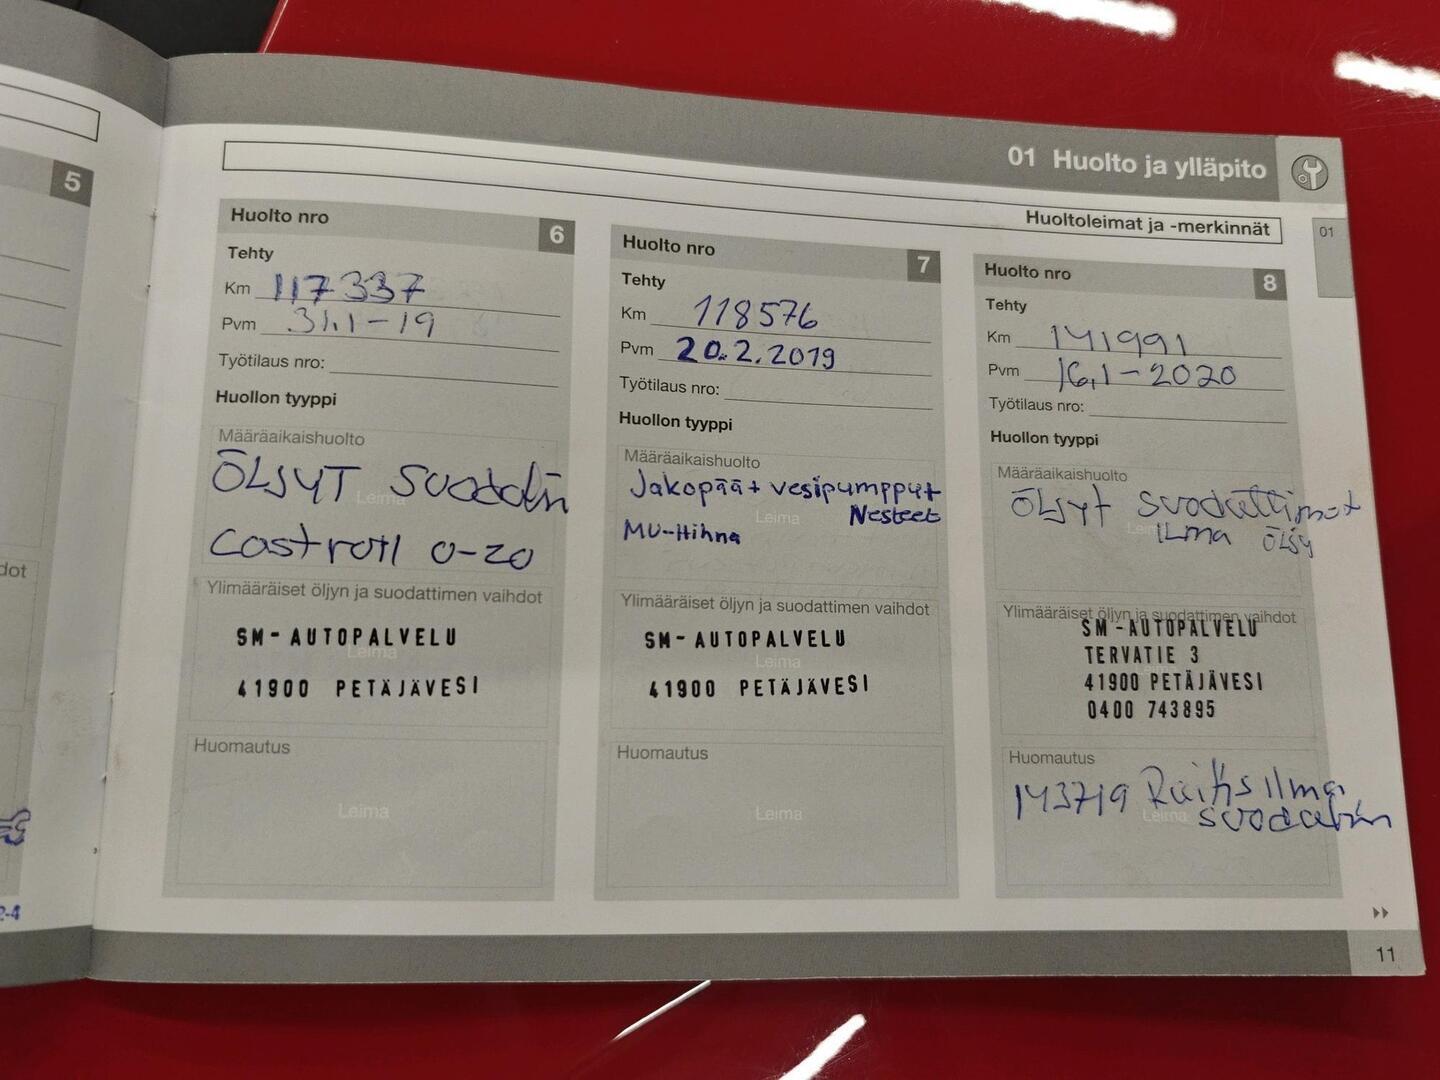 5
01 Huolto ja ylläpito
Huoltoleimat ja -merkinnät
01
Huolto nro 6
Tehty
Km 117337
Pvm 31.1-19
Työtilaus nro:
Huollon tyyppi
Määräaikaishuolto
Leima
ÖLJYT suodatin
Castroll 0-20
Ylimääräiset öljyn ja suodattimen vaihdot
Leima
SM-AUTOPALVELU
41900 PETÄJÄVESI
Huomautus
Leima
Huolto nro 7
Tehty
Km 118576
Pvm 20.2.2019
Työtilaus nro:
Huollon tyyppi
Määräaikaishuolto
Jakopää+ vesipumpput
Leima
Nesteet
MU-Hihna
Ylimääräiset öljyn ja suodattimen vaihdot
SM-AUTOPALVELU
Leima
41900 PETÄJÄVESI
Huomautus
Leima
Huolto nro 8
Tehty
Km 141991
Pvm 16.1-2020
Työtilaus nro:
Huollon tyyppi
Määräaikaishuolto
ÖLJyt suodattimet
ILma ÖLJy
Ylimääräiset öljyn ja suodattimen vaihdot
SM-AUTOPALVELU
TERVATIE 3
41900 PETÄJÄVESI
0400 743895
Huomautus
143719 Raitisilma
Leima
suodatin
dot
2-4
11